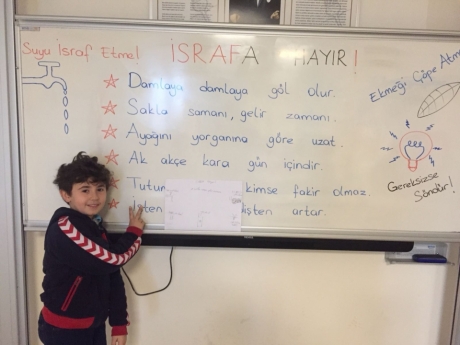 Suyu İsraf Etme!
İSRAFA HAYIR!
Damlaya damlaya göl olur.
Sakla samanı, gelir zamanı.
Ayağını yorganına göre uzat.
Ak akçe kara gün içindir.
Tutum kimse fakir olmaz.
İşten işten artar.
Ekmeği Çöpe Atma
Gereksizse
Söndür!